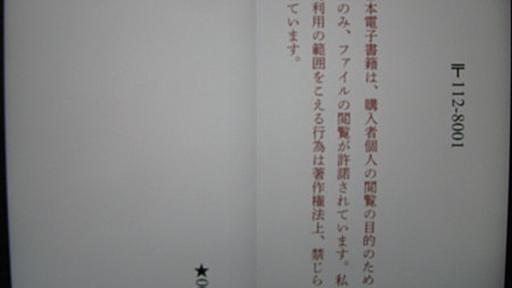 〒112-8001
本電子書籍は、購入者個人の閲覧の目的のため
のみ、ファイルの閲覧が許諾されています。私
利用の範囲をこえる行為は著作権法上、禁じら
ています。
★0